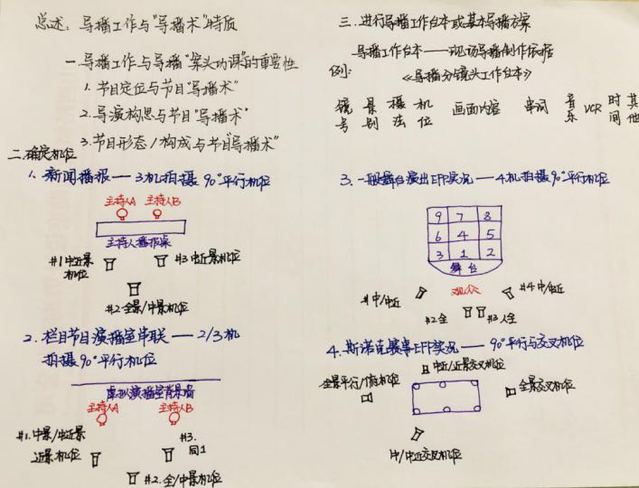 总述：导播工作与"导播术"特质
一.导播工作与导播"案头功课"的重要性
1.节目定位与节目"导播术"
2.导演构思与节目"导播术"
3.节目形态/构成与节目"导播术"
二.确定机位
1.新闻播报——3机拍摄 90°平行机位
主持人A 主持人B
主持人播报桌
#1中近景机位
#3中近景机位
#2全景/中景机位
2.栏目节目演播室串联——2/3机
拍摄90°平行机位
虚拟演播室背景墙
主持人A 主持人B
#1.中景/中近景
近景机位
#3.
同1
#2.全/中景机位
三.进行导播工作台本或基本导播方案
导播工作台本——现场导播制作依据
例：《导播分镜头工作台本》
镜号 景别 摄法 机位 画面内容 串词 音乐 VCR 时间 其他
3.一般舞台演出EFP实况——4机拍摄90°平行机位
9 7 8
6 4 5
3 1 2
舞台
观众
#1中/中近
#4中/中近
#2全
#3人全
4.斯诺克赛事EFP实况——90°平行与交叉机位
中近/近景交叉机位
全景平行/俯机位
全景交叉机位
中/中近交叉机位